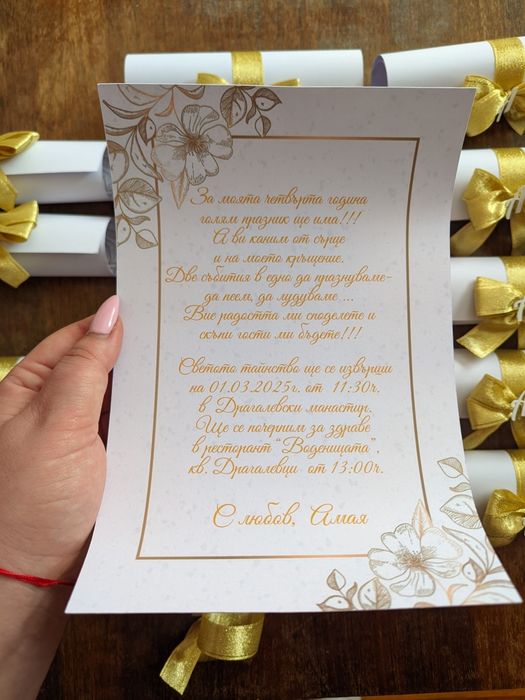 За моята четвърта година
голям празник ще има!!!
А ви каним от сърце
и на моето кръщение.
Две събития в едно да празнуваме-
да пеем, да лудуваме...
Вие радостта ми споделете и
скъпи гости ми бъдете!!!
Светото тайнство ще се извърши
на 01.03.2025г. от 11:30ч.
в Драгалевски манастир.
Ще се почерпим за здраве
в ресторант "Воденицата",
кв. Драгалевци от 13:00ч.
С любов, Амая